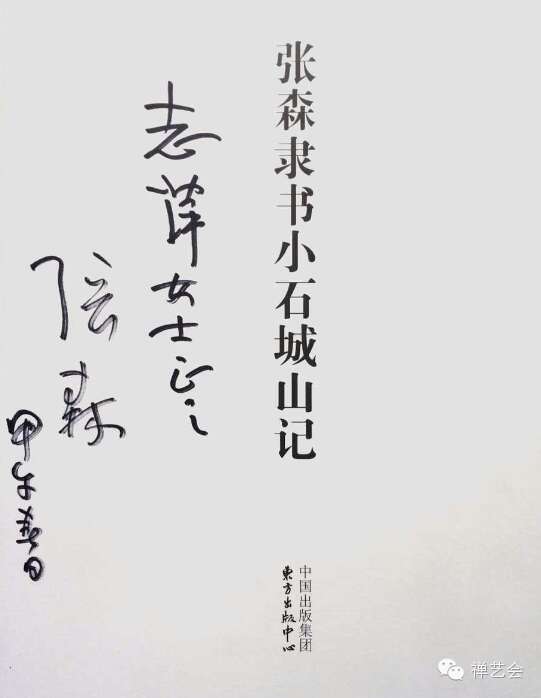 张森隶书小石城山记
中国出版集团
東方出版中心
志萍女士正之
张森
甲午春日
禅艺会